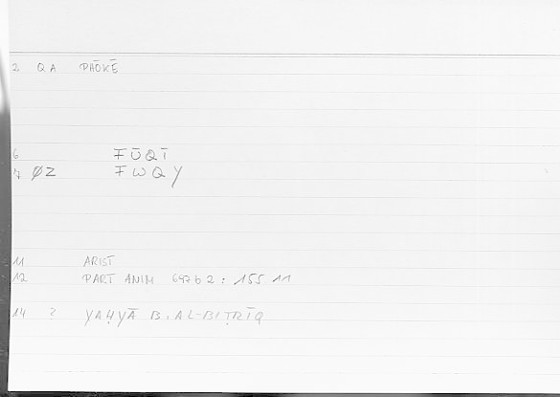 2 QA PHŌKĒ
6 FŪQĪ
7 ØZ FWQY
11 ARIST
12 PART ANIM 697b2: 155 11
14 ? YAḤYĀ B. AL-BIṬRĪQ